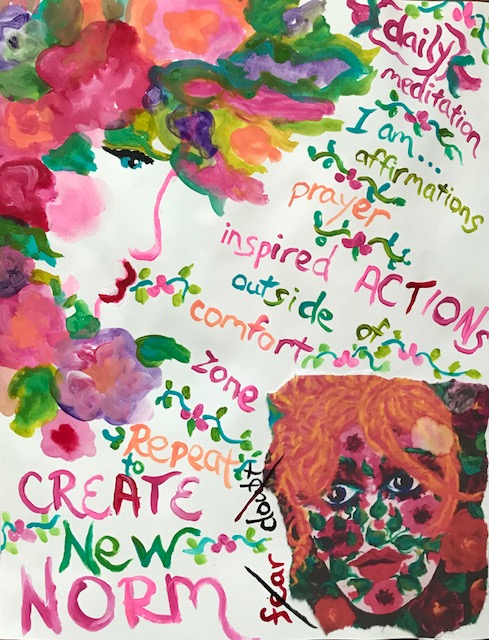 daily
meditation
I am...
affirmations
prayer
inspired ACTIONS
outside of
comfort
zone
Repeat
to
CREATE
New
NORM
doubt
fear